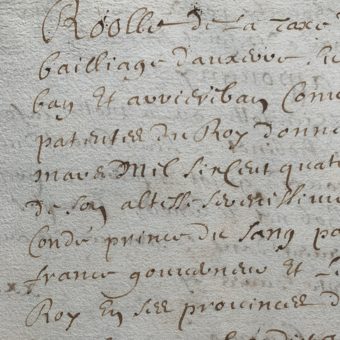 Roolle de La taxe
bailliage d'auxerre
ban Et arriereban
patentes du Roy donne
mars Mil six Cent quat
de son altesse serenissime
Condé prince du sang pa
france gouverneur Et
Roy En ses provinces d